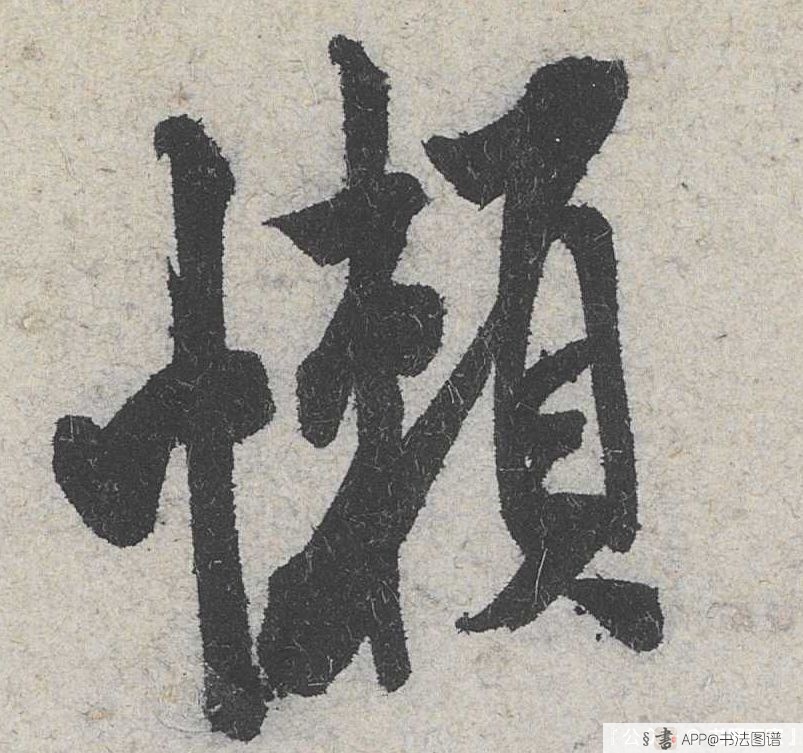 懶
公§書 APP@书法图谱